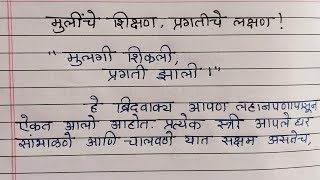 मुलींचे शिक्षण, प्रगतीचे लक्षण !
"मुलगी शिकली,
प्रगती झाली।"
हे ब्रिदवाक्य आपण लहानपणापासून
ऐकत आलो आहोत. प्रत्येक स्त्री आपले घर
सांभाळणे आणि चालवणे यात सक्षम असतेच,